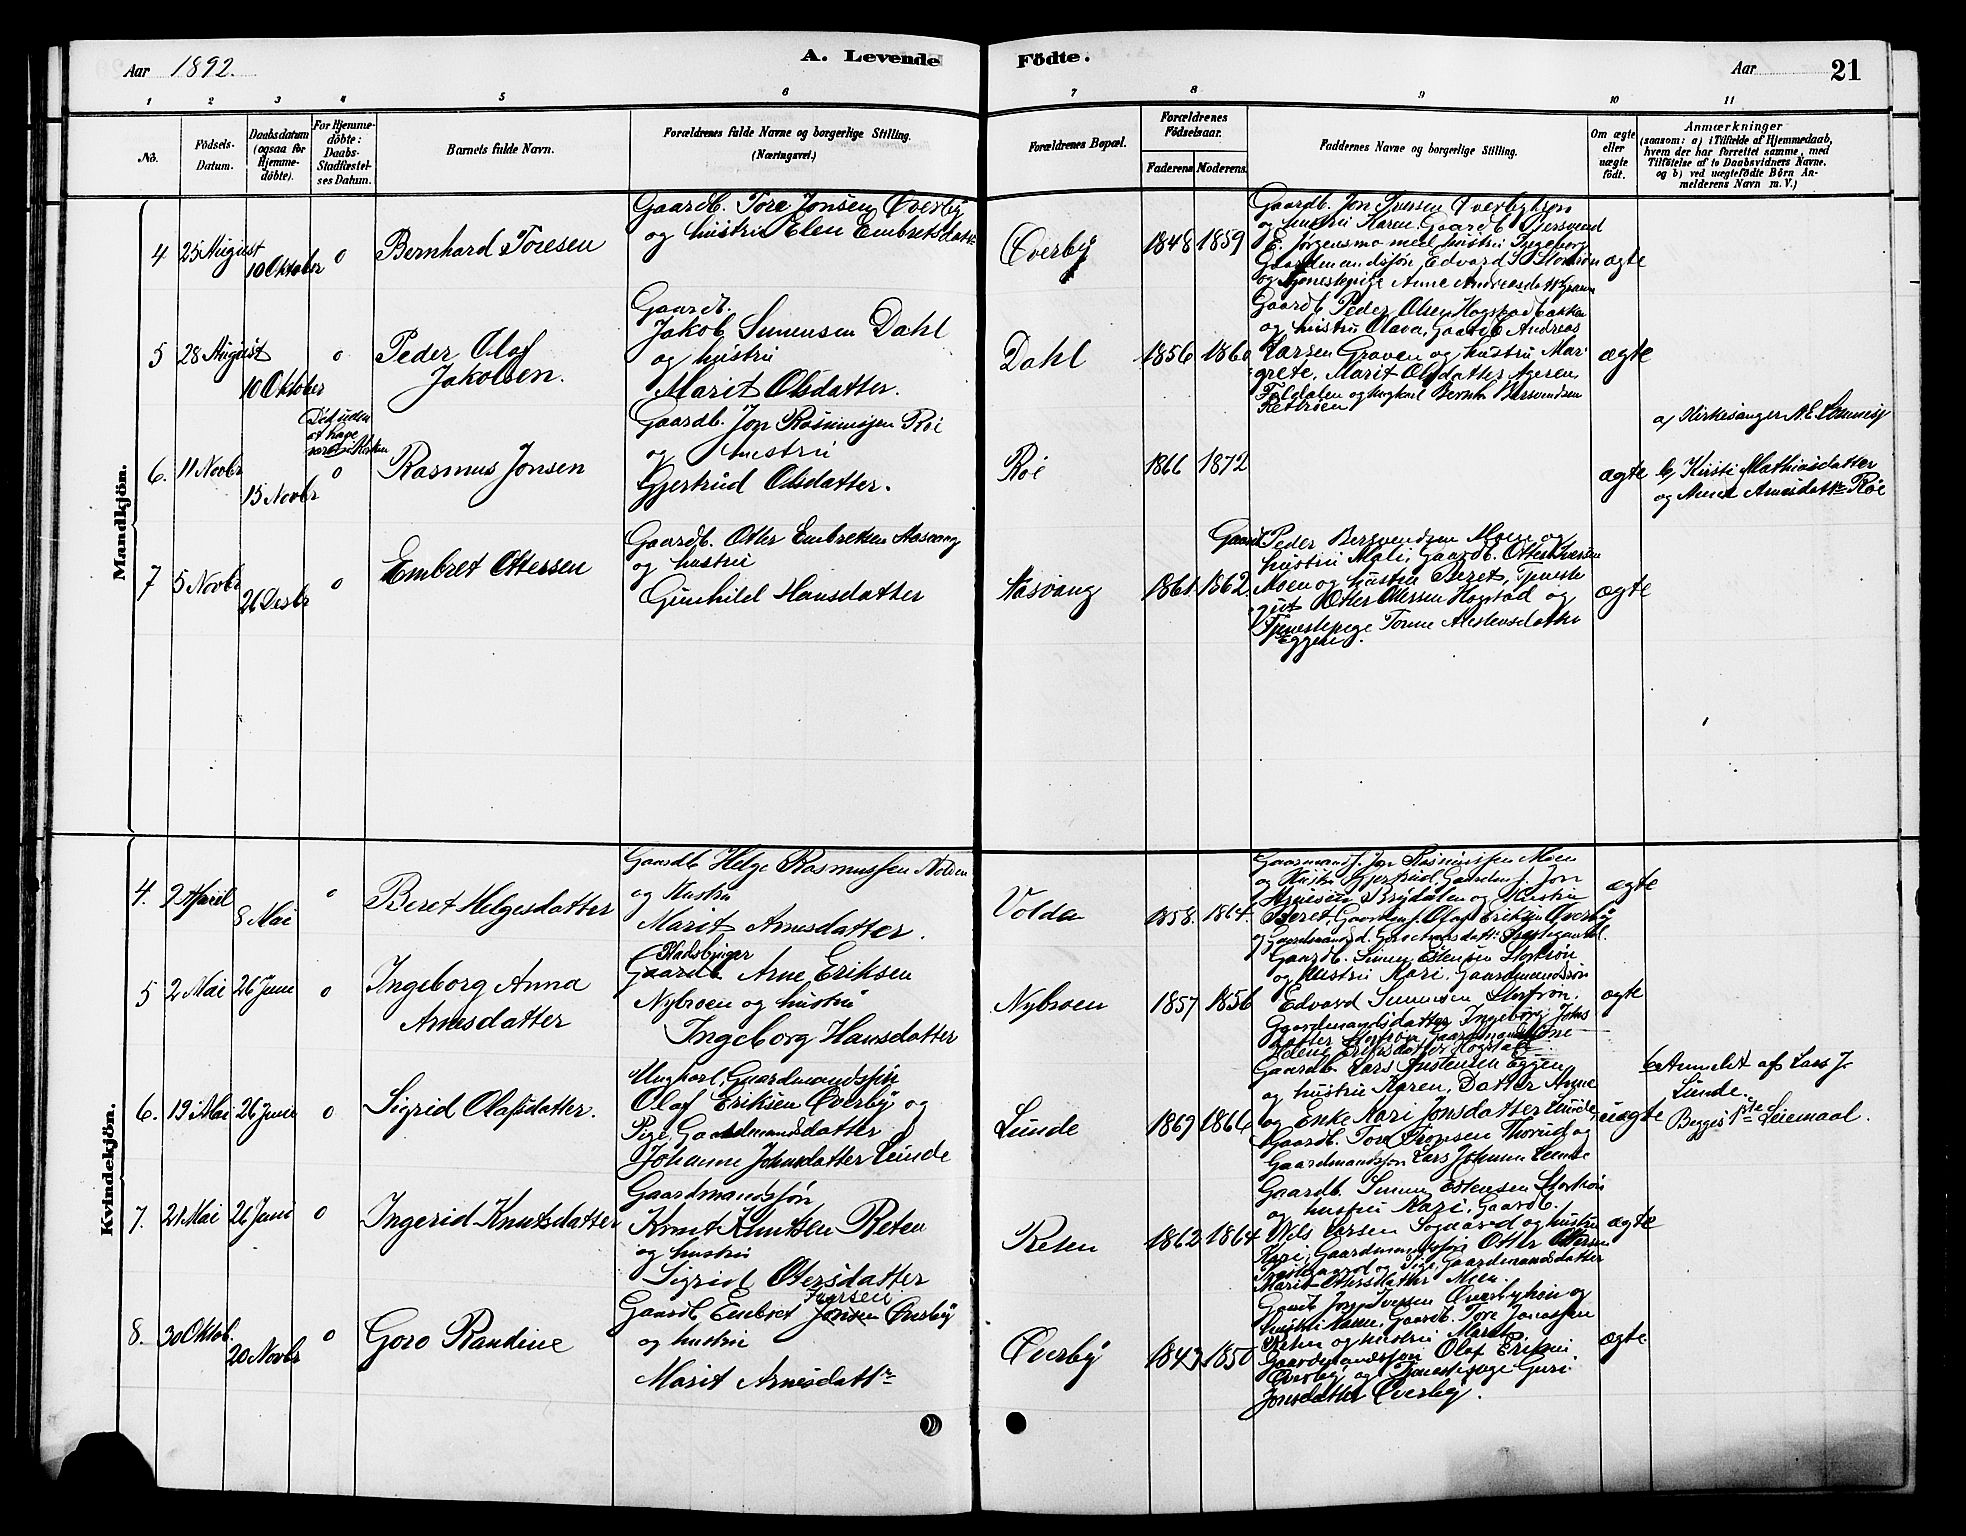 Aar 1892.
A. Levende Födte.
Aar 21
1 2 3 4 5 6 7 8 9 10 11
No.
Födsels-Datum.
Daabsdatum (ogsaa for Hjemme-döbte).
For Hjemme-döbte: Daabs-Stadfæstel-ses Datum.
Barnets fulde Navn.
Forældrenes fulde Navne og borgerlige Stilling.
(Næringsvei.)
Forældrenes Bopæl.
Forældrenes Födselsaar.
Faderens Moderens.
Faddernes Navne og borgerlige Stilling.
Om ægte eller uægte født.
Anmærkninger
(saasom: a) i Tilfælde af Hjemmedaab,
hvem der har forrettet samme, med
Tilföielse af to Daabsvidners Navne.
og b) ved uægtefödte Börn An-
melderens Navn m. V.)
Mandkjön.
4 25 August 10 Oktober o
Bernhard Toresen
Gaardb. Tore Jonsen Øverby
og hustru Elen Embretsdatter
Øverby
1848 1859
Gaardb. Jon Iversen Øverbyhøn
og hustru Karen, Gaardb. Bersvend
E. Jørgensmo med hustru Ingeborg
Gaardmandssøn Edvard S. Storrøn
og Tjenestepige Anne Andreasdatter
ægte
5 28 August 10 Oktober o
Peder Olaf
Jakobsen.
Gaardb.
Jakob Simensen Dahl
og hustru
Marit Olsdatter.
Dahl
1856 1860
Gaardb. Peder Olsen Hogstadbakken
og hustru Olava, Gaardb. Andreas
Larsen Graven og hustru Mar
grete, Marit Olsdatter
Foldalen og Ungkarl Bernh. Bersvendsen
ægte
6. 11 Novbr 15 Novbr
Død uden
at have
været i Kirken
o
Rasmus Jonsen
Gaardb. Jon Rasmussen Røe
og hustru
Gjertrud Olsdatter.
Røe
1866 1872
ægte
a) Kirkesanger N. E.
b) Kirsti Mathiasdatter
og Anne Arnesdatter Røe
7 5 Novbr 26 Desbr o
Embret Ottersen
Gaardb. Otter Embretsen Aasvang
og hustru
Gunhild Hansdatter
Aasvang
1861 1862
Gaardb. Peder Bersvendsen Moen og
hustru Mali, Gaardb. Otter Iversen
Moen og hustru Beret, Tjeneste
gut Otter Ottersen Hogstad og
Tjenestepige Tonne Austensdatter
Eggen.
ægte
Kvindekjön.
4. 2 April 8 Mai o
Beret Helgesdatter
Gaardb Helge Rasmussen Volden
og Hustru
Marit Arnesdatter.
Volden
1858. 1864.
Gaardmands. Jon Rasmussen Moen
og Hustru Gjertrud, Gaardm. s. Jon
Arnesen Brydalen og Hustru
Beret, Gaardm. s. Olaf Eriksen Øverby
og Gaardmandsd.
ægte
5 2 Mai 26 Juni o
Ingeborg Anna
Arnesdatter
Pladsbruger
Gaardb Arne Eriksen
Nybroen og hustru
Ingeborg Hansdatter
Nybroen
1857 1856
Gaardb. Simen Estensen Storrøn
og Hustru Kari, Gaardmandssøn
Edvard Simensen Storrøn.
Gaardmandsdatter Ingeborg Johns
datter Storrøn, Gaardmandskone
Eriksdatter Hogstad
ægte
6. 19 Mai 26 Juni o
Sigrid Olafsdatter.
Ungkarl, Gaardmandssøn
Olaf Eriksen Øverby og
Pige, Gaardmandsdatter
Johanne Johnsdatter Lunde
Lunde
1869 1866
Gaardb Lars Austensen Eggen
og hustru Karen, Datter Anne
og Enke Kari Jonsdatter Lunde,
Gaardb. Tore Thorud og
Gaardmandssøn Lars Johnsen Lunde
uægte
b Anmeldt af Lars J.
Lunde.
Begges 1ste Leiemaal.
7. 21 Mai 26 Juni o
Ingerid Knutsdatter
Gaardmandssøn
Knut Knutsen Reten
og hustru
Sigrid Otersdatter
Reten
1862 1864
Gaardb. Simen Estensen Storrøn
og hustru Kari, Gaardb.
Nils Larsen Sogaard og hustru
Kari, Gaardmandssøn Otter Ottersen
og Pige, Gaardmandsdatter
Marit Otersdatter Moen.
ægte
8. 30 Oktob. 20 Novbr o
Goro Randine
Iversen
Gaardb Embret Jonsen Øverby
og hustru
Marit Arnesdattr
Øverby
1843 1850
Gaardb Jon Iversen Øverbyhøn og
hustru Karen, Gaardb. Tore Jonassen
Reten og hustru Marit
Gaardmandssøn Olaf Eriksen
Øverby og Tjenestepige Guri
Jonsdatter Øverby.
ægte